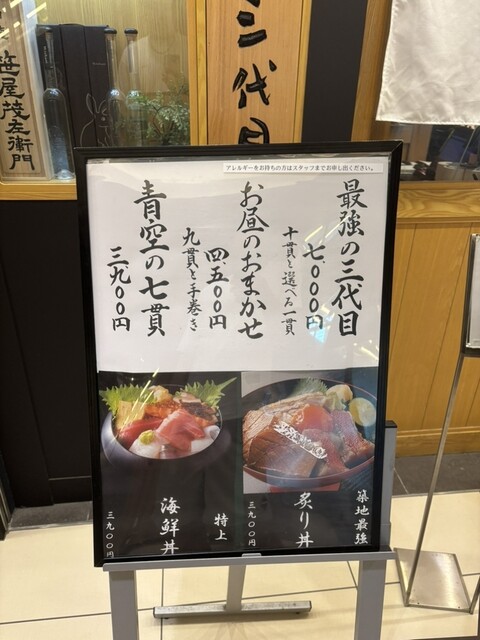 三代目
笹屋茂左衛門
アレルギーをお持ちの方はスタッフまでお申し出ください。
最強の三代目
七、000円
十貫と選べる一貫
お昼のおまかせ
四五00円
九貫と手巻き
青空の七貫
三九00円
築地最強
炙り丼
三九〇〇円
特上
海鮮丼
三九〇〇円